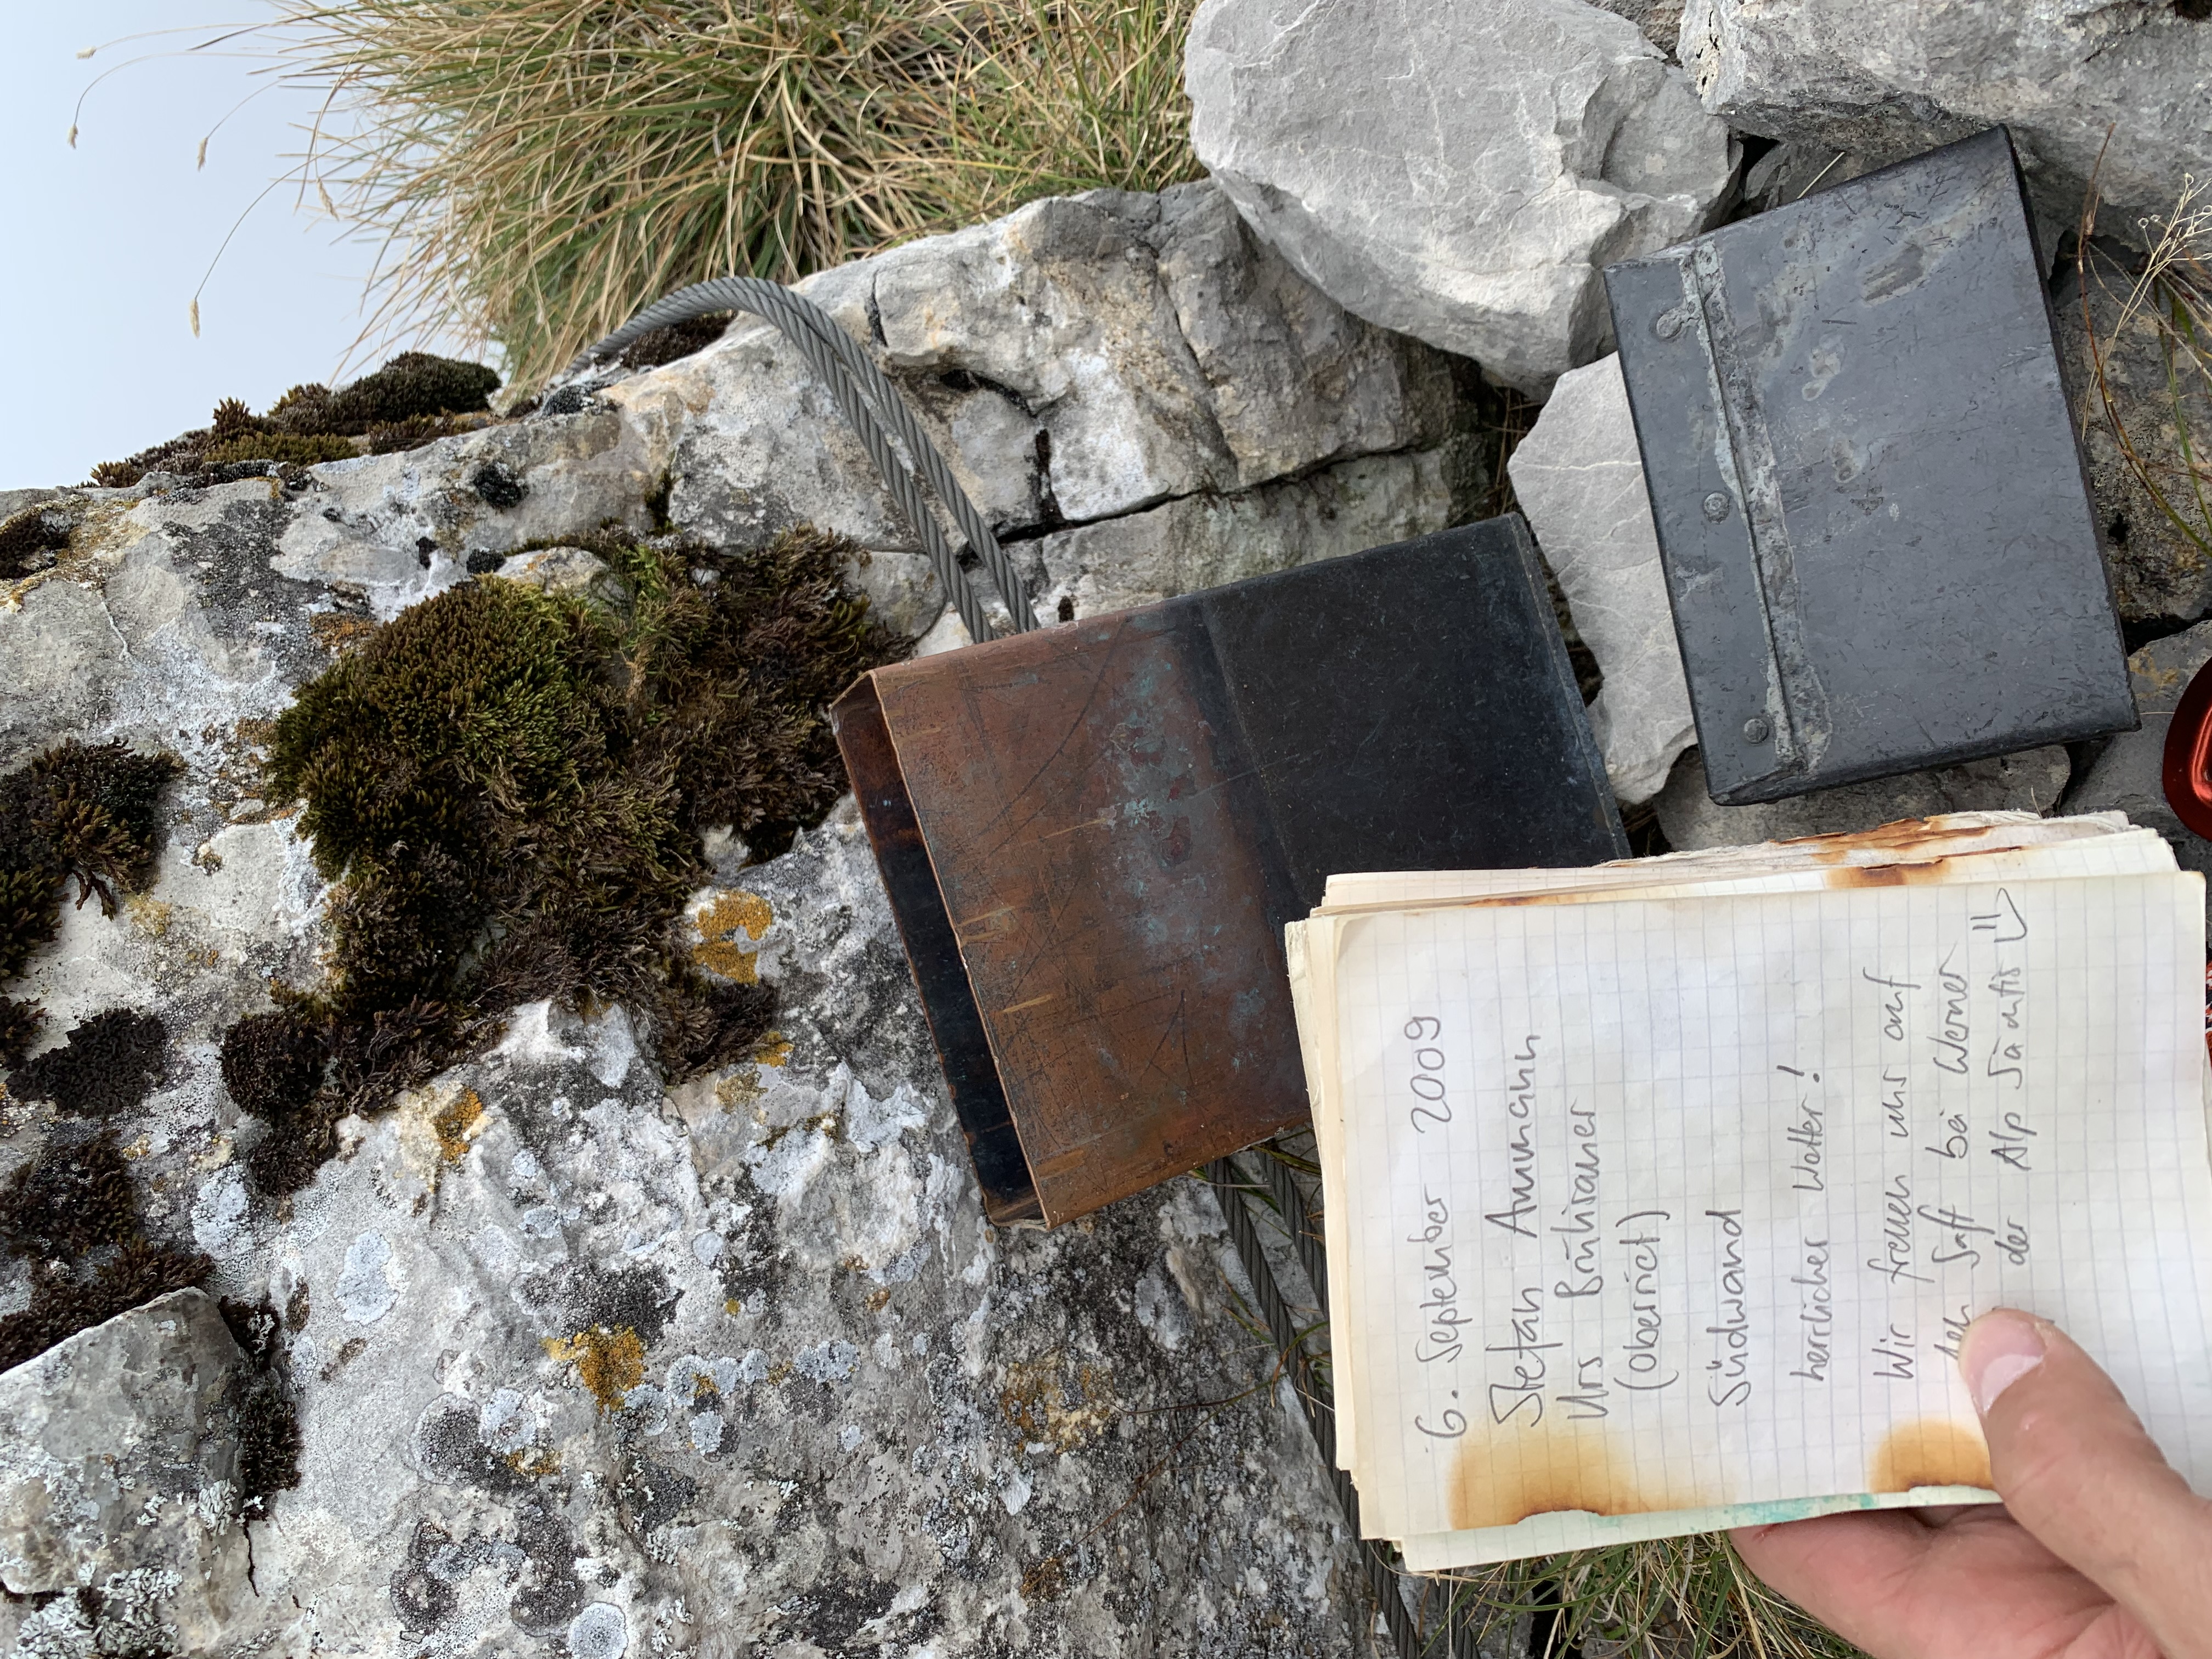 6. September 2009
Stefan Ammann
Urs Brülisauer
(Oberriet)
Südwand
herrlicher Wetter!
Wir freuen uns auf
den Saft bei Werner
der Alp Säntis